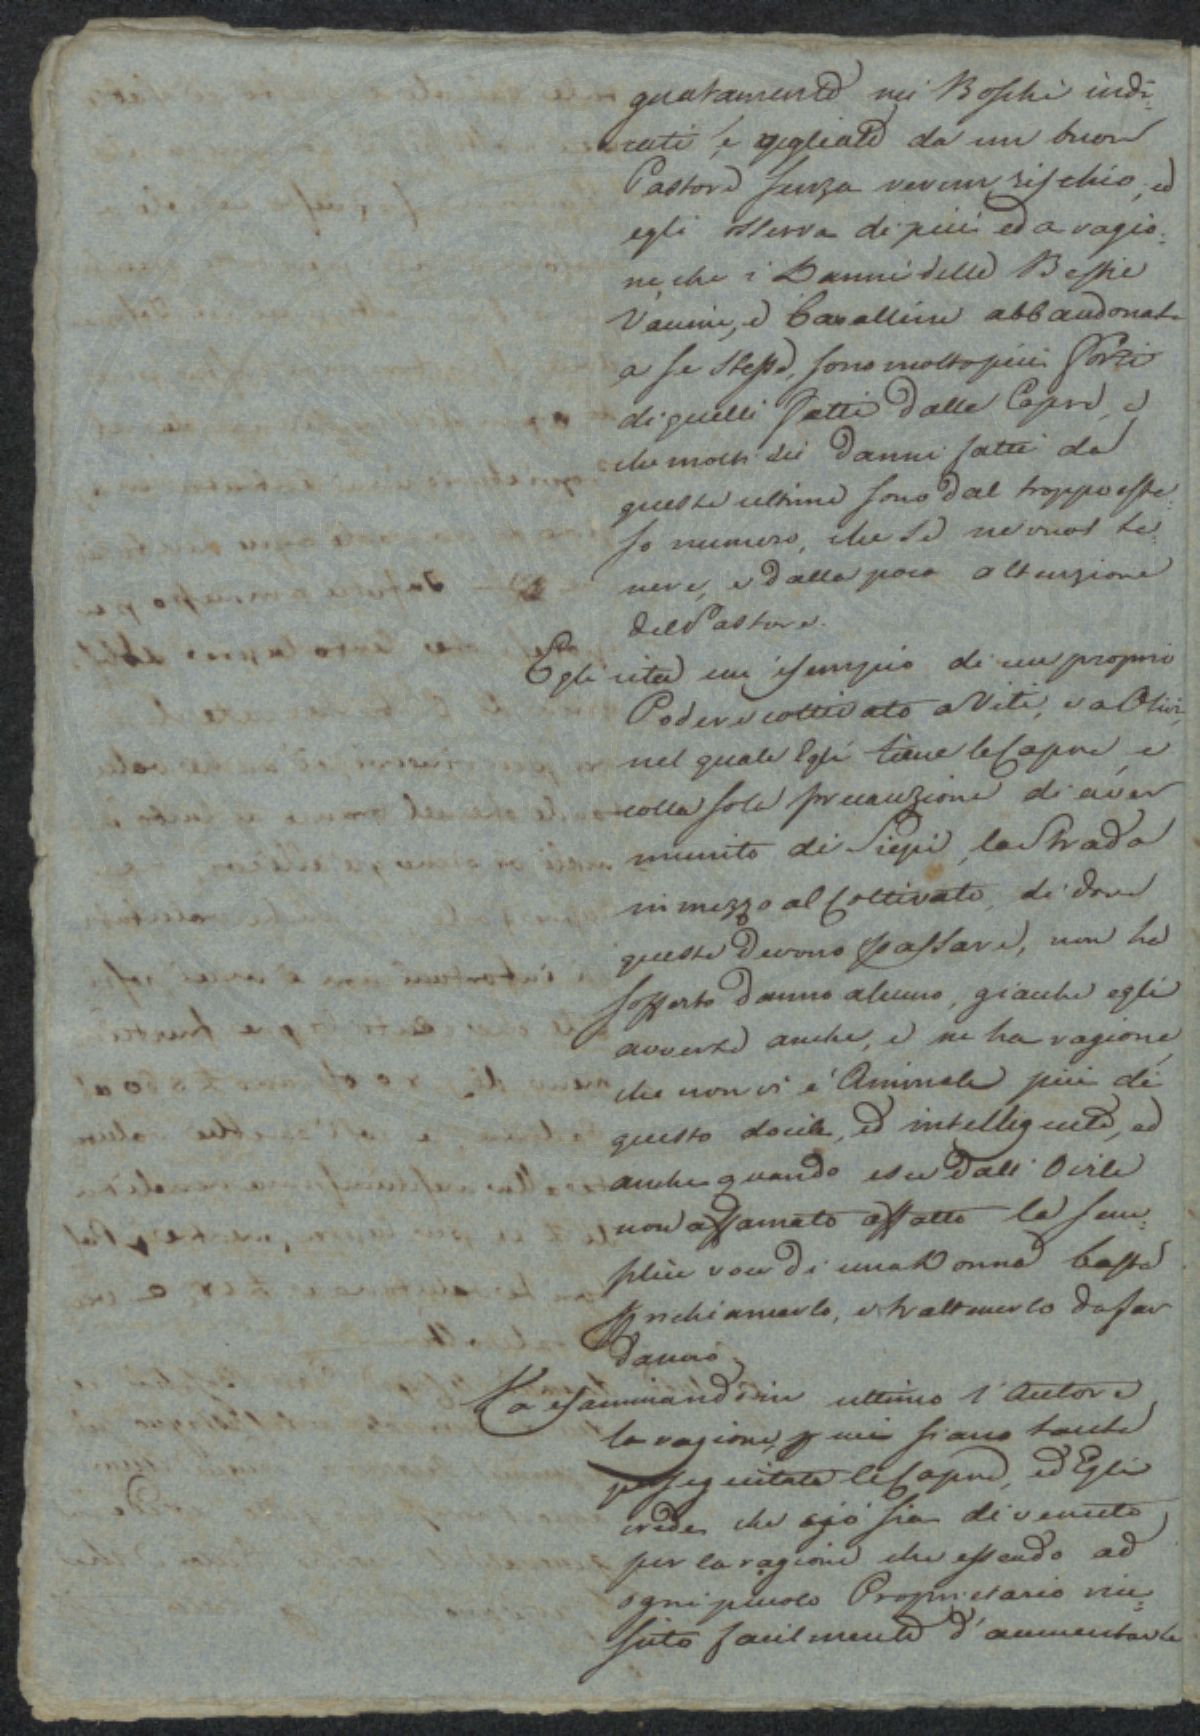 guatamente nei Boschi indi-
cati, e vegliate da un buon
Pastore senza verun rischio, ed
egli osserva di più ed a ragio-
ne, che i Danni delle Bestie
Vaccine, e Cavalline abbandonate
a se stesse, sono molto più forti
di quelli fatti dalle Capre, e
che molti dei danni fatti da
queste ultime sono dal troppo este-
so numero, che se ne vuol te-
nere, e dalla poca attenzione
del Pastore.
Egli cita un esempio di un proprio
Podere coltivato a Viti, e a Olivi,
nel quale Egli tiene le Capre, e
colla sola precauzione di aver
munito di Siepi la Strada
in mezzo al Coltivato, di dove
queste devono passare, non ha
sofferto danno alcuno, giacche egli
avverte anche, e ne ha ragione
che non vi è Animale più di
questo docile, ed intelligente, ed
anche quando esce dall' Ovile
non affamato affatto la sem-
plice voce di una Donna basta
p richiamarlo, e trattenerlo da far
danno.
Va esaminando in ultimo l'Autore
la ragione, p cui siano tanto
perseguitate le Capre, ed Egli
crede che ciò sia divenuto
per la ragione che essendo ad
ogni piccolo Proprietario riu-
scito facilmente d'aumentarle